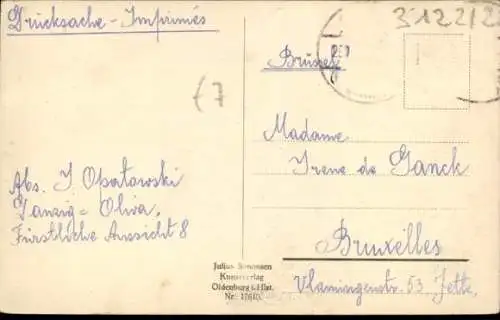 Drücksache - Imprimés
312212
Brüssel
(7
Madame
Irene de Ganck
Abs. J Opatowski
Danzig = Oliva,
Fürstliche Aussicht 8
Bruxelles
Vlamingenstr. 53 Jette.
Julius Simonsen
Kunstverlag
Oldenburg i. Hlst.
Nr.